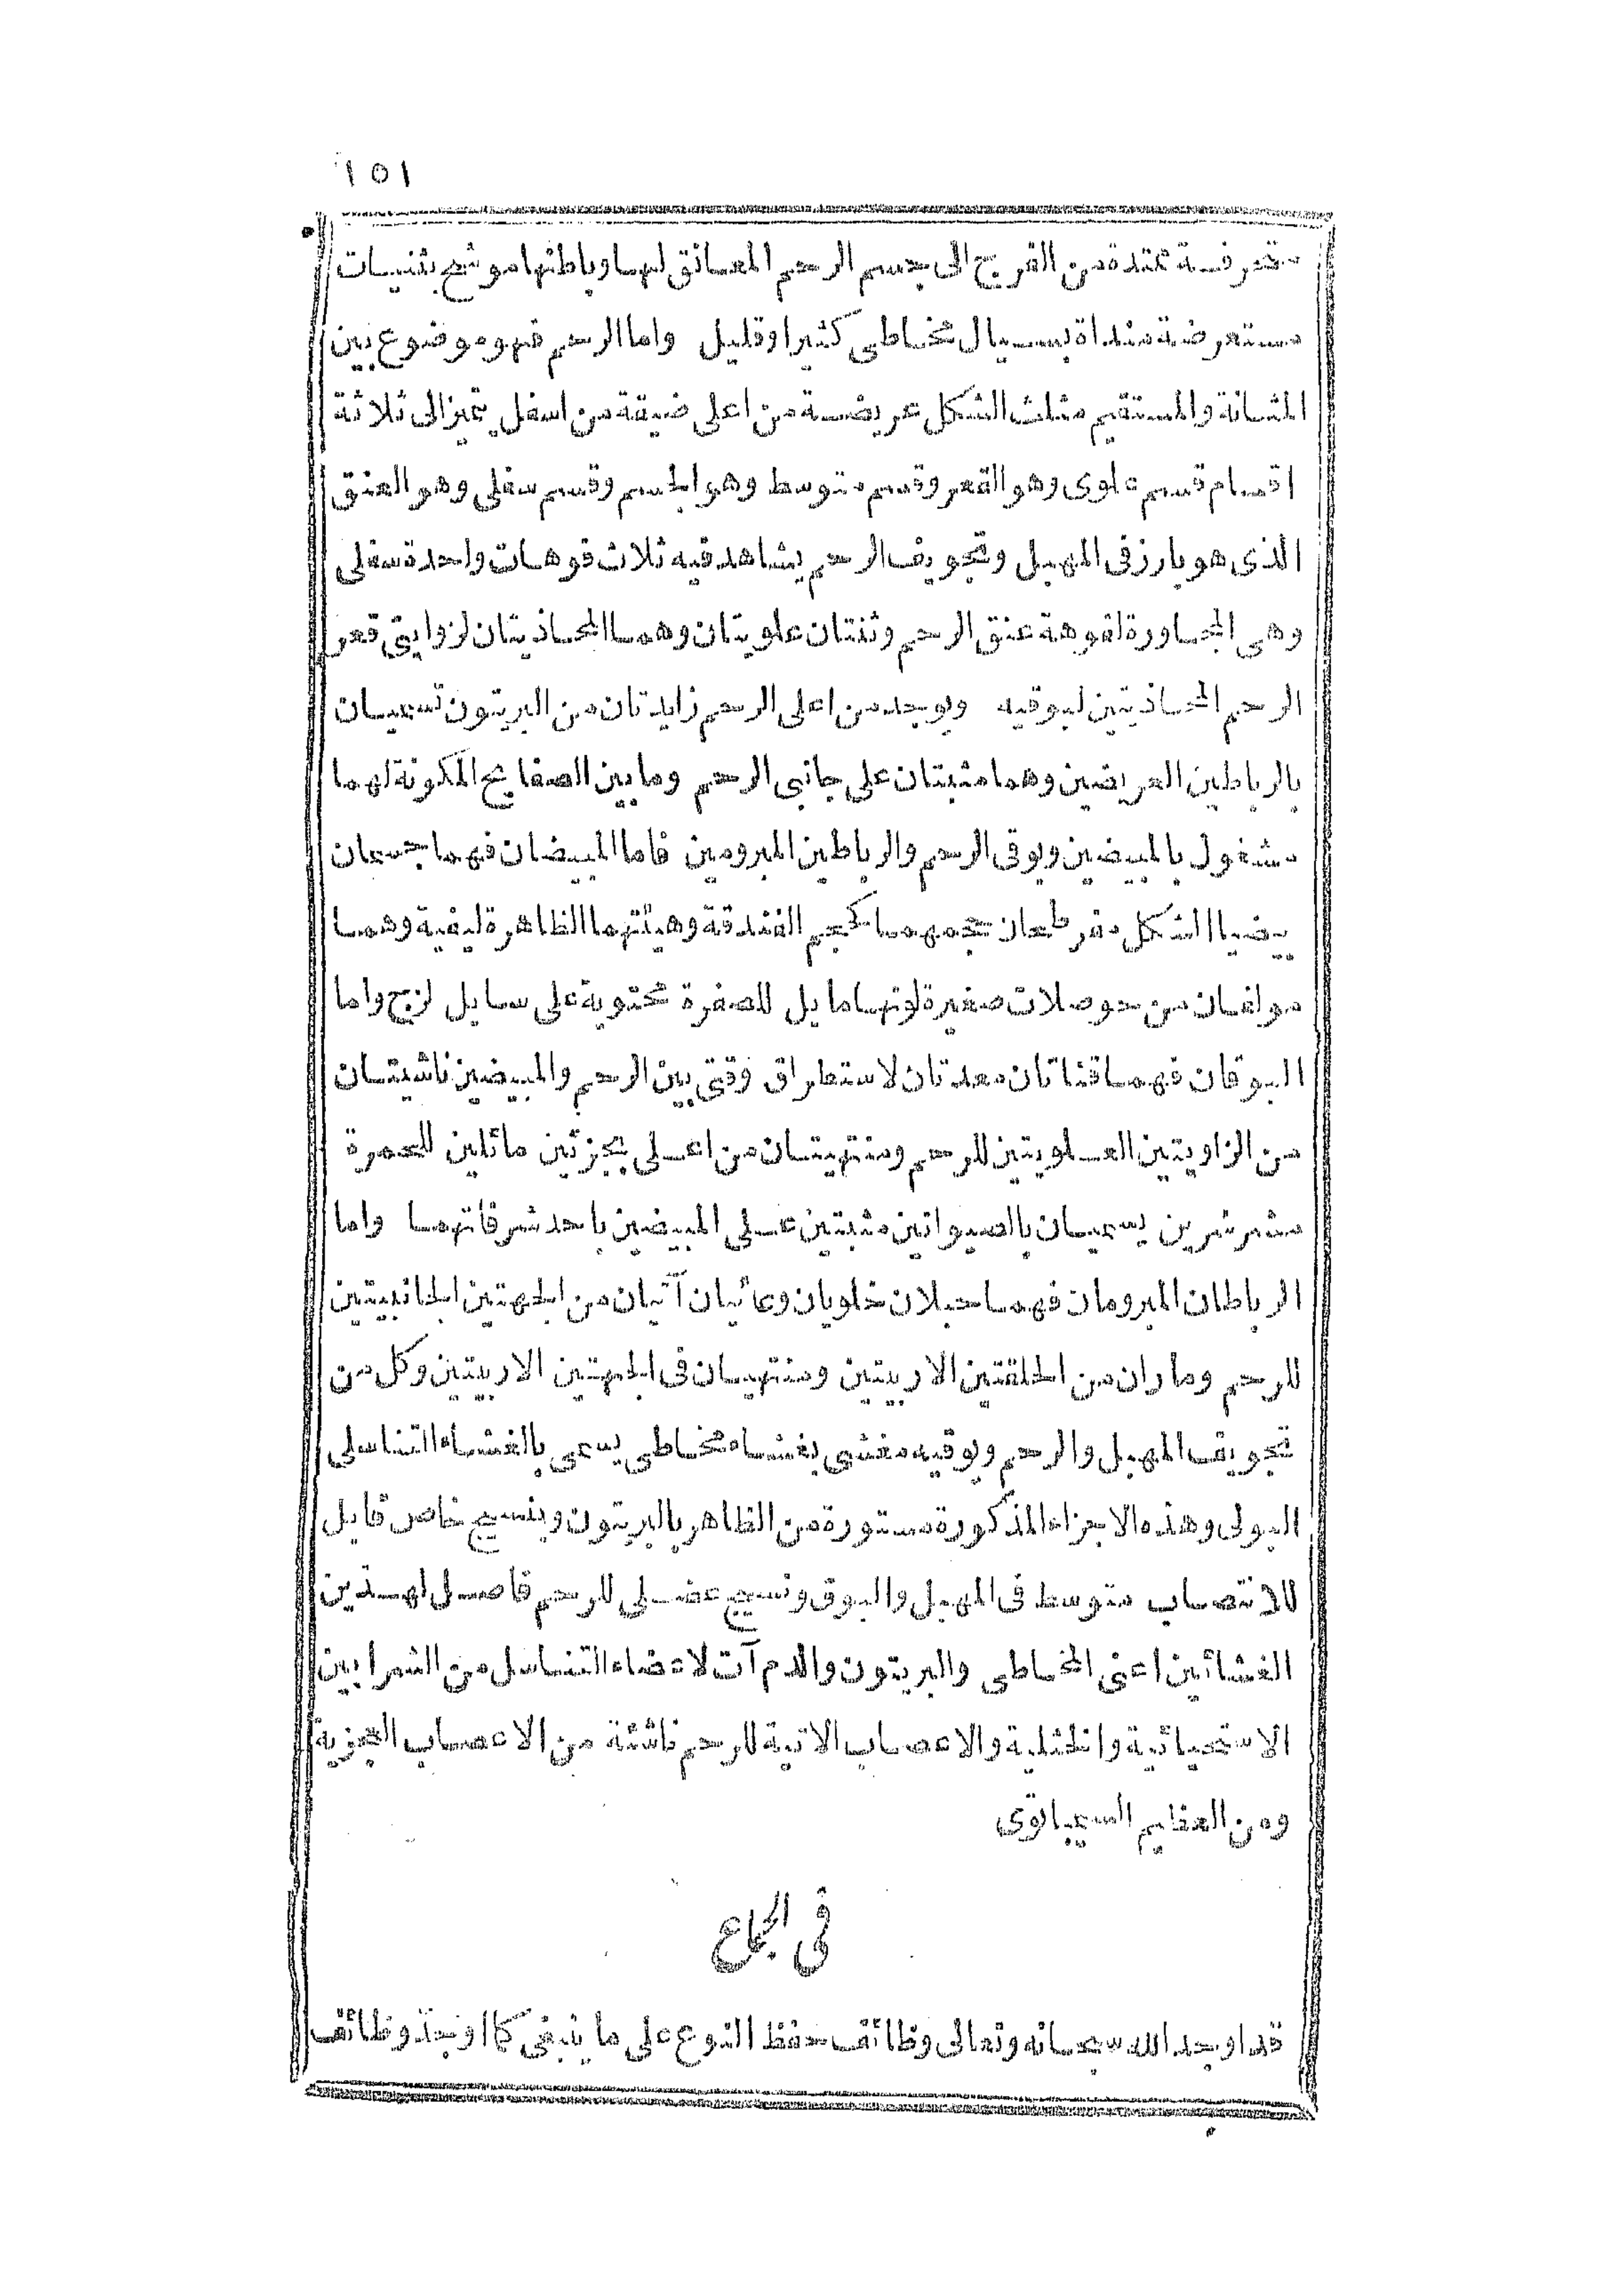 ١٥١
منحرفة ممتدة من الفرج الى جسم الرحم المعانق لها وباطنها موشح بثنيات
مستعرضة منداة بسيال مخاطى كثيرا وقليل واما الرحم فهو موضوع بين
المثانة والمستقيم مثلث الشكل عريضة من اعلى ضيقة من اسفل يتميز الى ثلاثة
اقسام قسم علوى وهو القعر وقسم متوسط وهو الجسم وقسم سفلى وهو العنق
الذى هو بارز فى المهبل وتجويف الرحم يشاهد فيه ثلاث فوهات واحدة سفلى
وهى المجاورة لفوهة عنق الرحم وثنتان علويتان وهما المحاذيتان لزوايتى قعر
الرحم المحاذيتين لبوقيه ويوجد من اعلى الرحم زايدتان من البريتون تسميان
بالرباطين العريضين وهما مثبتتان على جانبى الرحم وما بين الصفايح المكونة لهما
مشغول بالمبيضين وبوقى الرحم والرباطين المبرومين فاما المبيضان فهما جسمان
بيضيا الشكل مفرطحان حجمهما كحجم الفندقة وهيئتهما الظاهرة ليفية وهما
مولفان من حوصلات صغيرة لونها مايل للصفرة محتوية على سايل لزج واما
البوقان فهما قناتان معدتان لاستطراق وقتى بين الرحم والمبيضين ناشيتان
من الزاويتين العلويتين للرحم ومنتهيتان من اعلى بجزئين مائلين للحمرة
مشرشرين يسميان بالصيوانين مثبتين على المبيضين باحد شرفاتهما واما
الرباطان المبرومان فهما حبلان خلويان وعائيان آتيان من الجهتين الجانبيتين
للرحم وماران من الحلقتين الاربيتين ومنتهيان فى الجهتين الاربيتين وكل من
تجويف المهبل والرحم وبوقيه مغشى بغشاء مخاطى يسمى بالغشاء التناسلى
البولى وهذه الاجزاء المذكورة مستورة من الظاهر بالبريتون وبنسيج خاص قابل
للانتصاب متوسط فى المهبل والبوق ونسيج عضلى للرحم فاصل لهذين
الغشائين اعنى المخاطى والبريتون والدم آت لاعضاء التناسل من الشرايين
الاستحيائية والخثلية والاعصاب الاتية للرحم ناشئة من الاعصاب العجزية
ومن العظيم السيمباتوى
فى الجماع
قد اوجد الله سبحانه وتعالى وظائف حفظ النوع على ما ينبغى كما اوجد وظائف